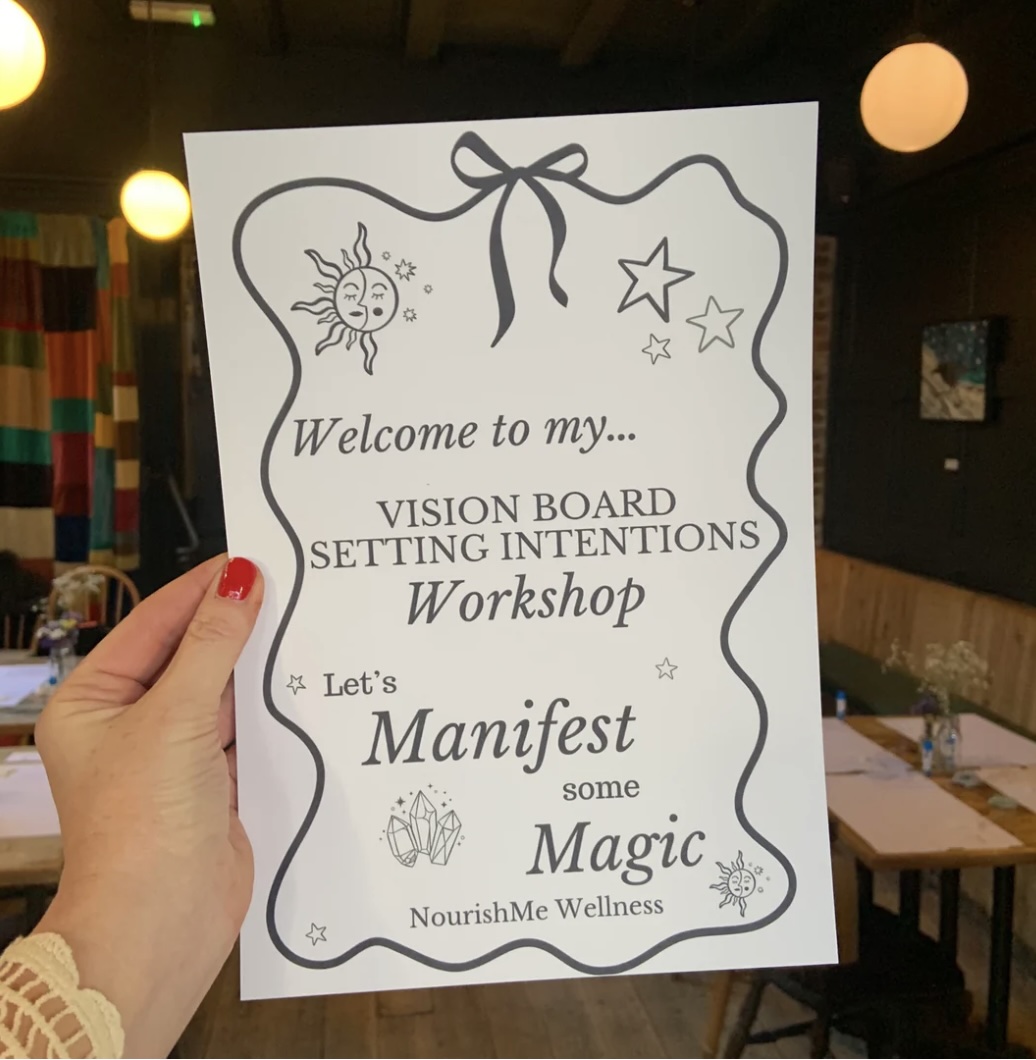 Welcome to my...
VISION BOARD
SETTING INTENTIONS
Workshop
Let's
Manifest
some
Magic
NourishMe Wellness